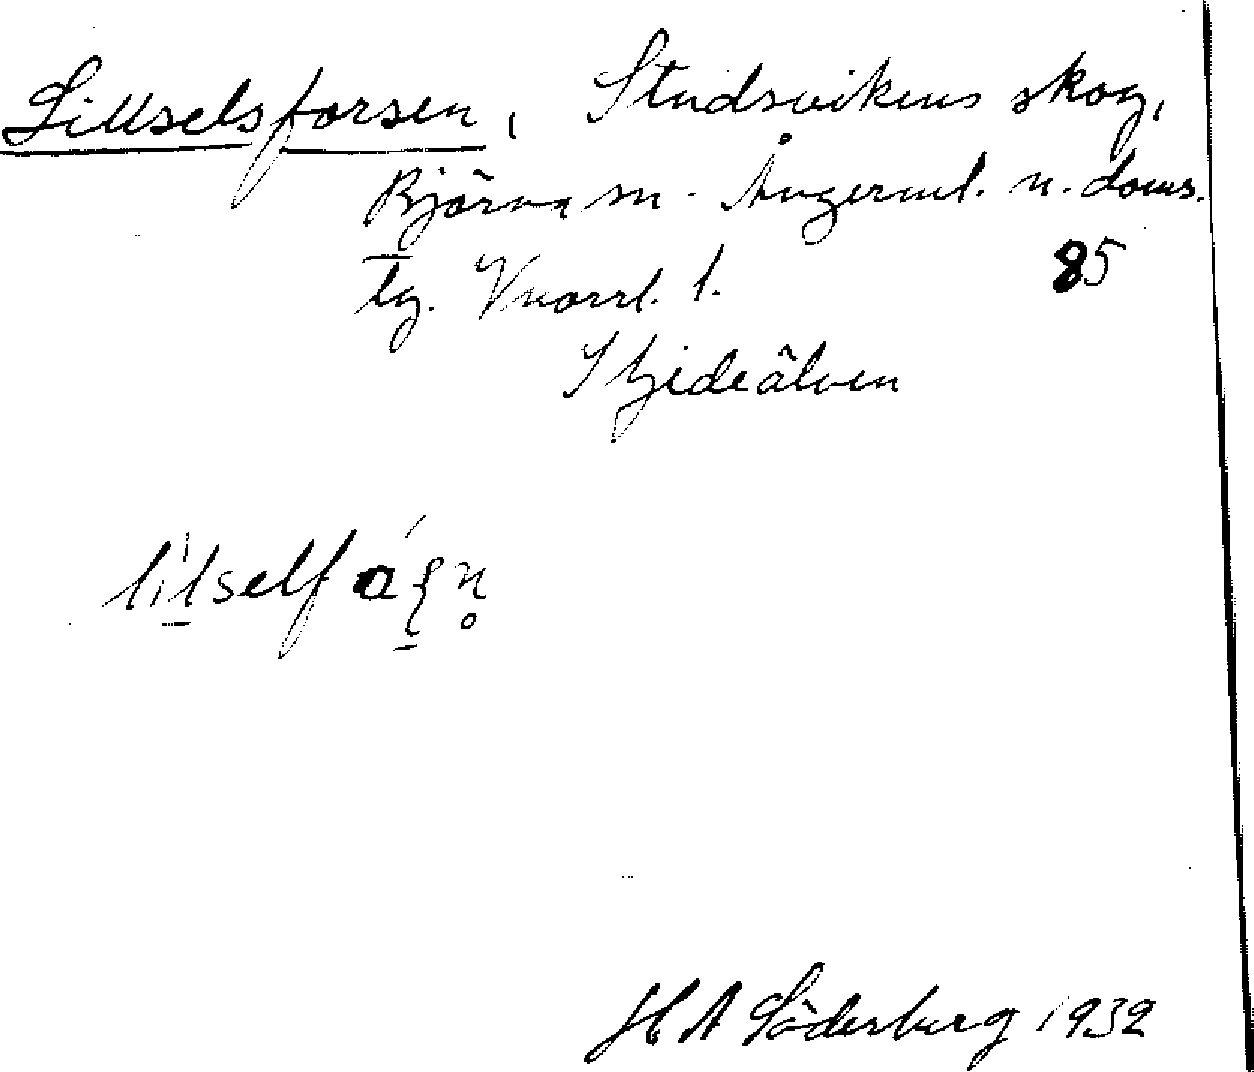 Lillselsforsen, Studsvikens skog,
Björna sn. Ångerml. n. doms.
tg. Vnorrl. l. 85
I Gideälven
H A Söderberg 1932